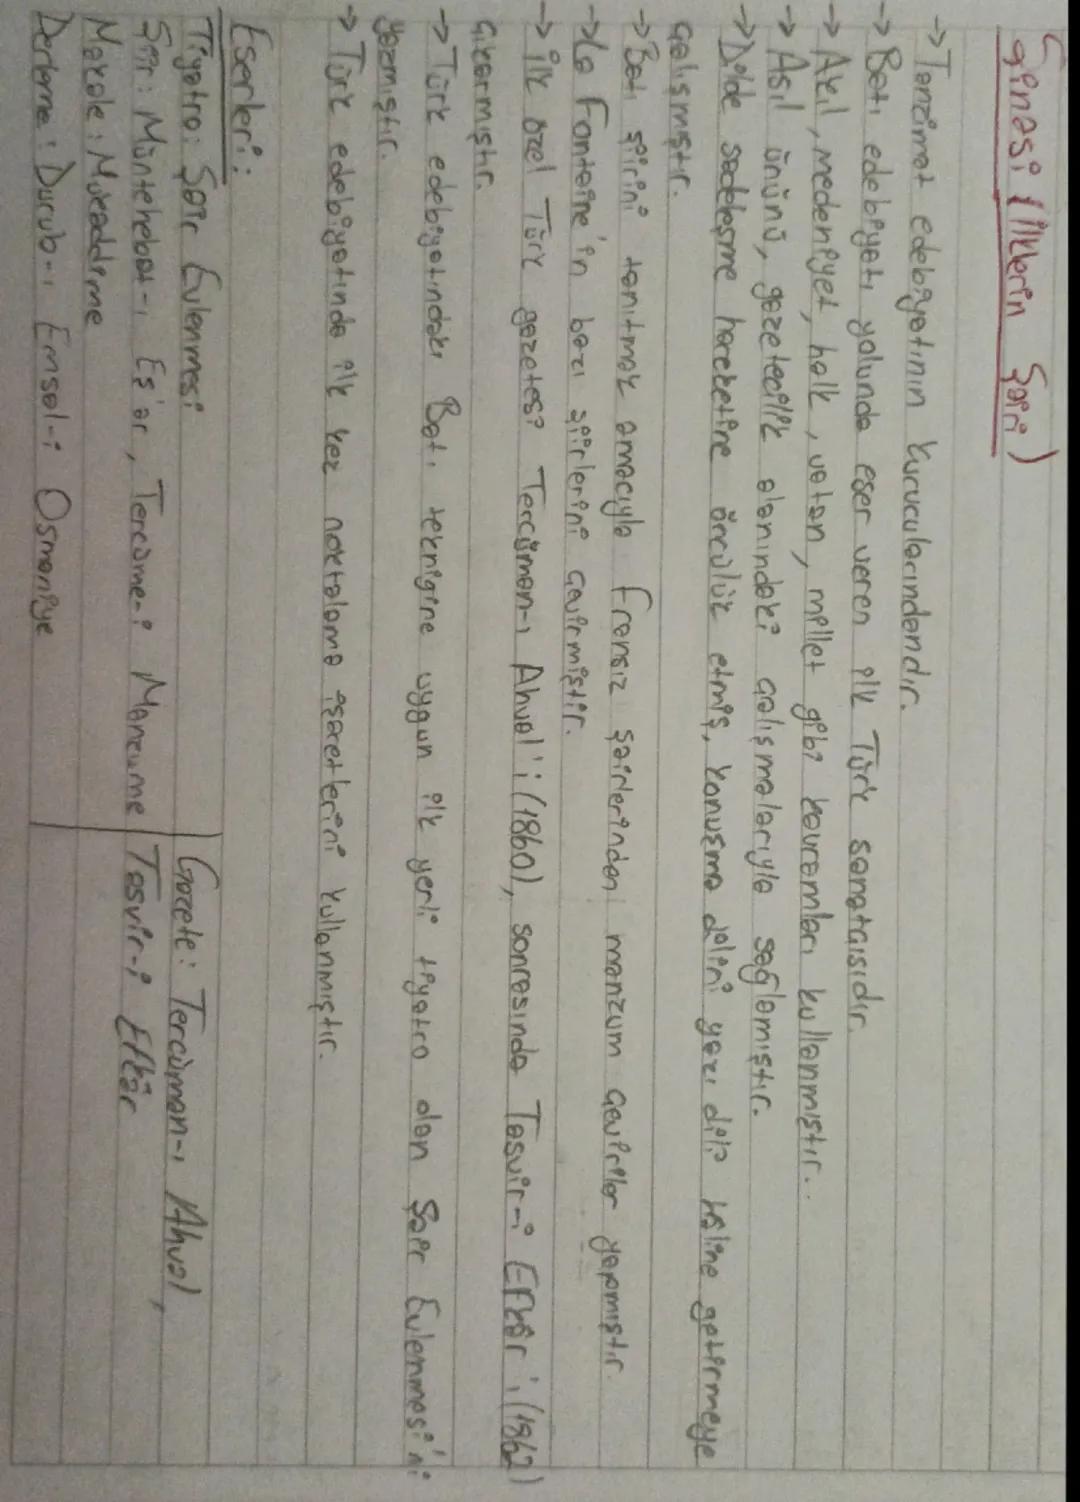 Şinasi (İlklerin Şairi)
→ Tanzimat edebiyatının kurucularındandır.
→ Batı edebiyatı yolunda eser veren ilk Türk sanatçısıdır.
→ Akıl, medeniyet, halk, vatan, millet gibi kavramları kullanmıştır..
→ Asıl ününü, gazetecilik alanındaki çalışmalarıyla sağlamıştır.
→ Dilde sadeleşme hareketine öncülük etmiş, konuşma dilini yazı dili hâline getirmeye
çalışmıştır.
→ Batı şiirini tanıtmak amacıyla Fransız şairlerinden manzum çeviriler yapmıştır.
→ La Fontaine'in bazı şiirlerini çevirmiştir.
→ İlk özel Türk gazetesi Tercüman-ı Ahval'i (1860), sonrasında Tasvir-i Efkâr'ı (1862)
çıkarmıştır.
→ Türk edebiyatındaki Batı tekniğine uygun ilk yerli tiyatro olan Şair Evlenmesi'ni
yazmıştır.
→ Türk edebiyatında ilk kez noktalama işaretlerini kullanmıştır.
Eserleri:
Tiyatro: Şair Evlenmesi
Şiir: Müntehebat-ı Eş'ar, Tercüme-i Manzume
Makale: Mukaddime
Derleme: Durub-ı Emsal-i Osmaniye
Gazete: Tercüman-ı Ahval,
Tasvir-i Efkâr